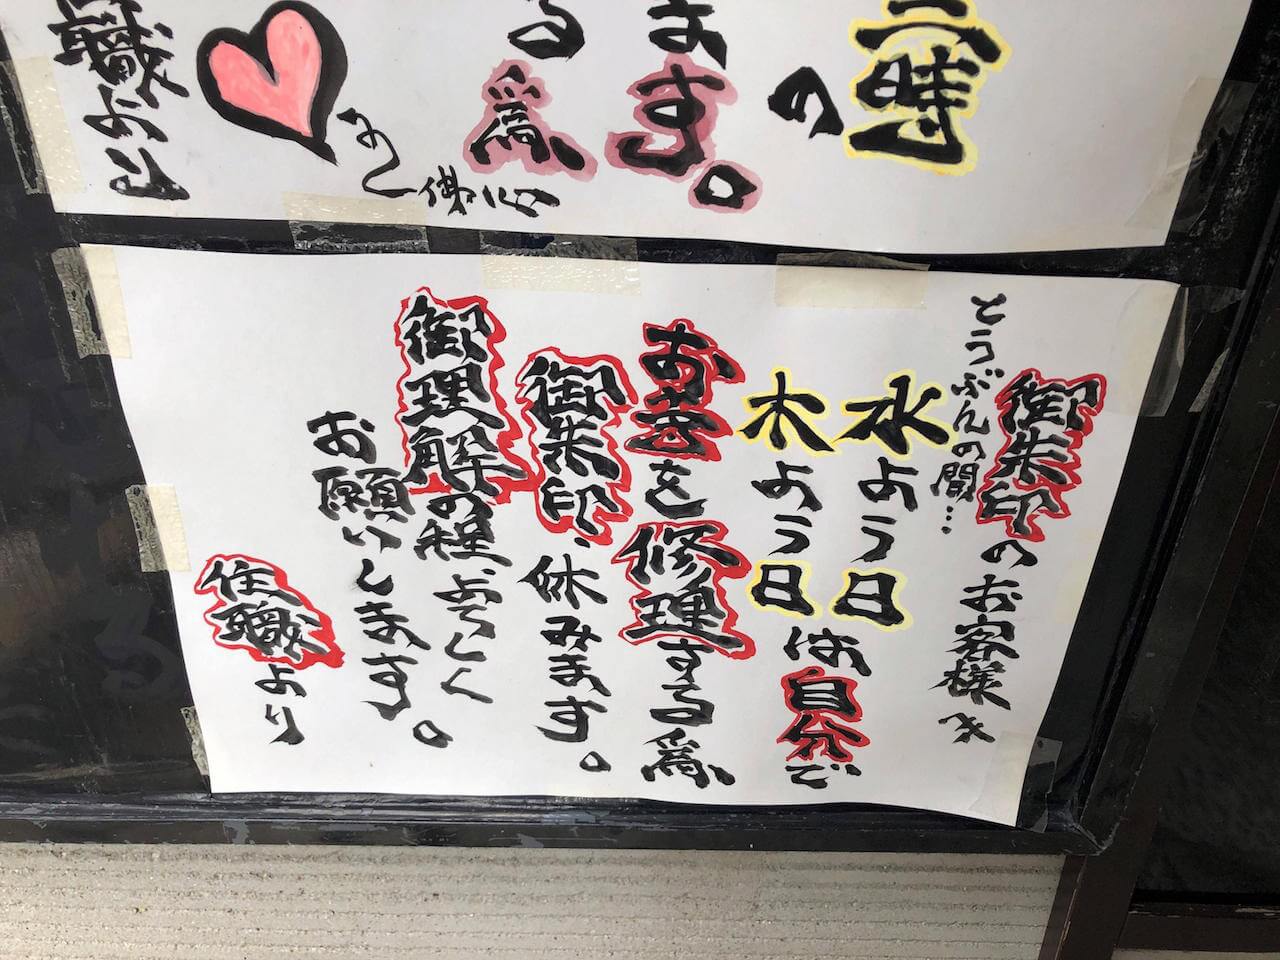 時
の
ます。
る為
佛心
職より
御朱印のお客様え
とうぶんの間…
水よう日
木よう日は自分で
お を修理する為
御朱印、休みます。
御理解の程、よろしく
お願いします。
住職より